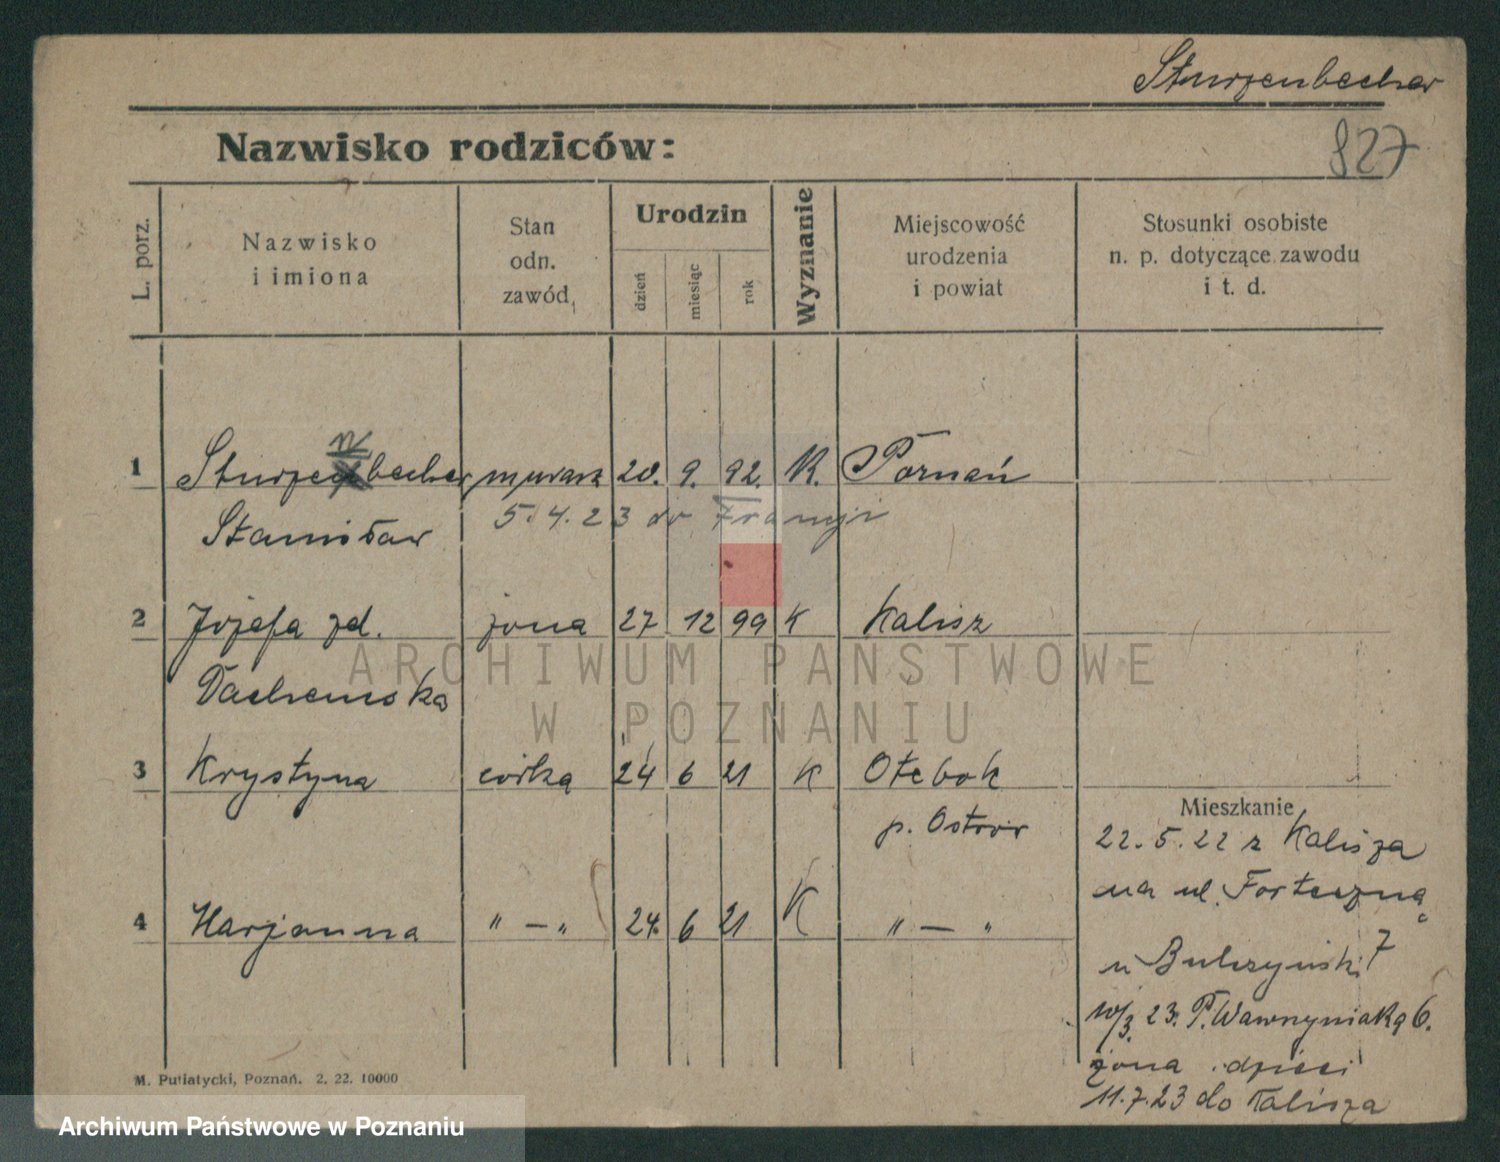 Sturzenbecher
827
Nazwisko rodziców:
L. porz.
Nazwisko
i imiona
Stan
odn.
zawód
Urodzin
dzień
miesiąc
rok
Wyznanie
Miejscowość
urodzenia
i powiat
Stosunki osobiste
n. p. dotyczące zawodu
i t. d.
n
1 Sturzenbecher murarz 20. 9. 92. K. Poznań
Stanisław 5.4.23 do Francji
2 Józefa zd. żona 27 12 99 K Kalisz
ARCHIWUM PAŃSTWOWE
W POZNANIU
3 Krystyna córka 24 6 21 K Otebok
p. Ostrów
4 Marjanna " — " 24. 6 21 K " — "
Mieszkanie
22.5.22 z Kalisza
na ul. Forteczną
u 7
10/3. 23. P. Wawrzyniaka 6.
żona i dzieci
11.7.23 do Kalisza
M. Putiatycki, Poznań. 2. 22. 10000
Archiwum Państwowe w Poznaniu